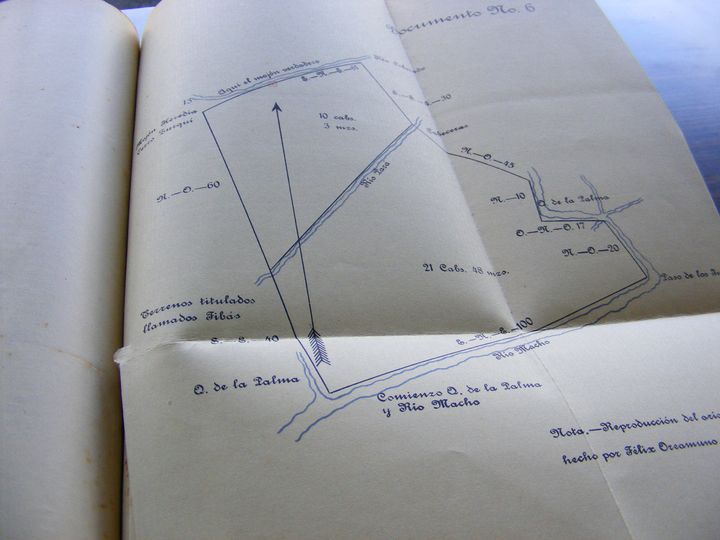 Documento No. 6
Aquí el mojón verdadero
15
E.-N.-E.-51
Mojón Heredia
Cerro Turquí
10 cabs.
3 mzs.
30
Cabeceras
Río Pará
N.-O.-60
N.-O.-45
N.-10
Q. de la Palma
O.-N.-O. 17
N.-O.-20
21 Cabs. 48 mzs.
Paso de los
Terrenos titulados
llamados Tibás
S.-E. 40
E.-N.-E.-100
Río Macho
Q. de la Palma
Comienzo Q. de la Palma
y Río Macho
Nota.-Reproducción del
hecho por Félix Oreamuno